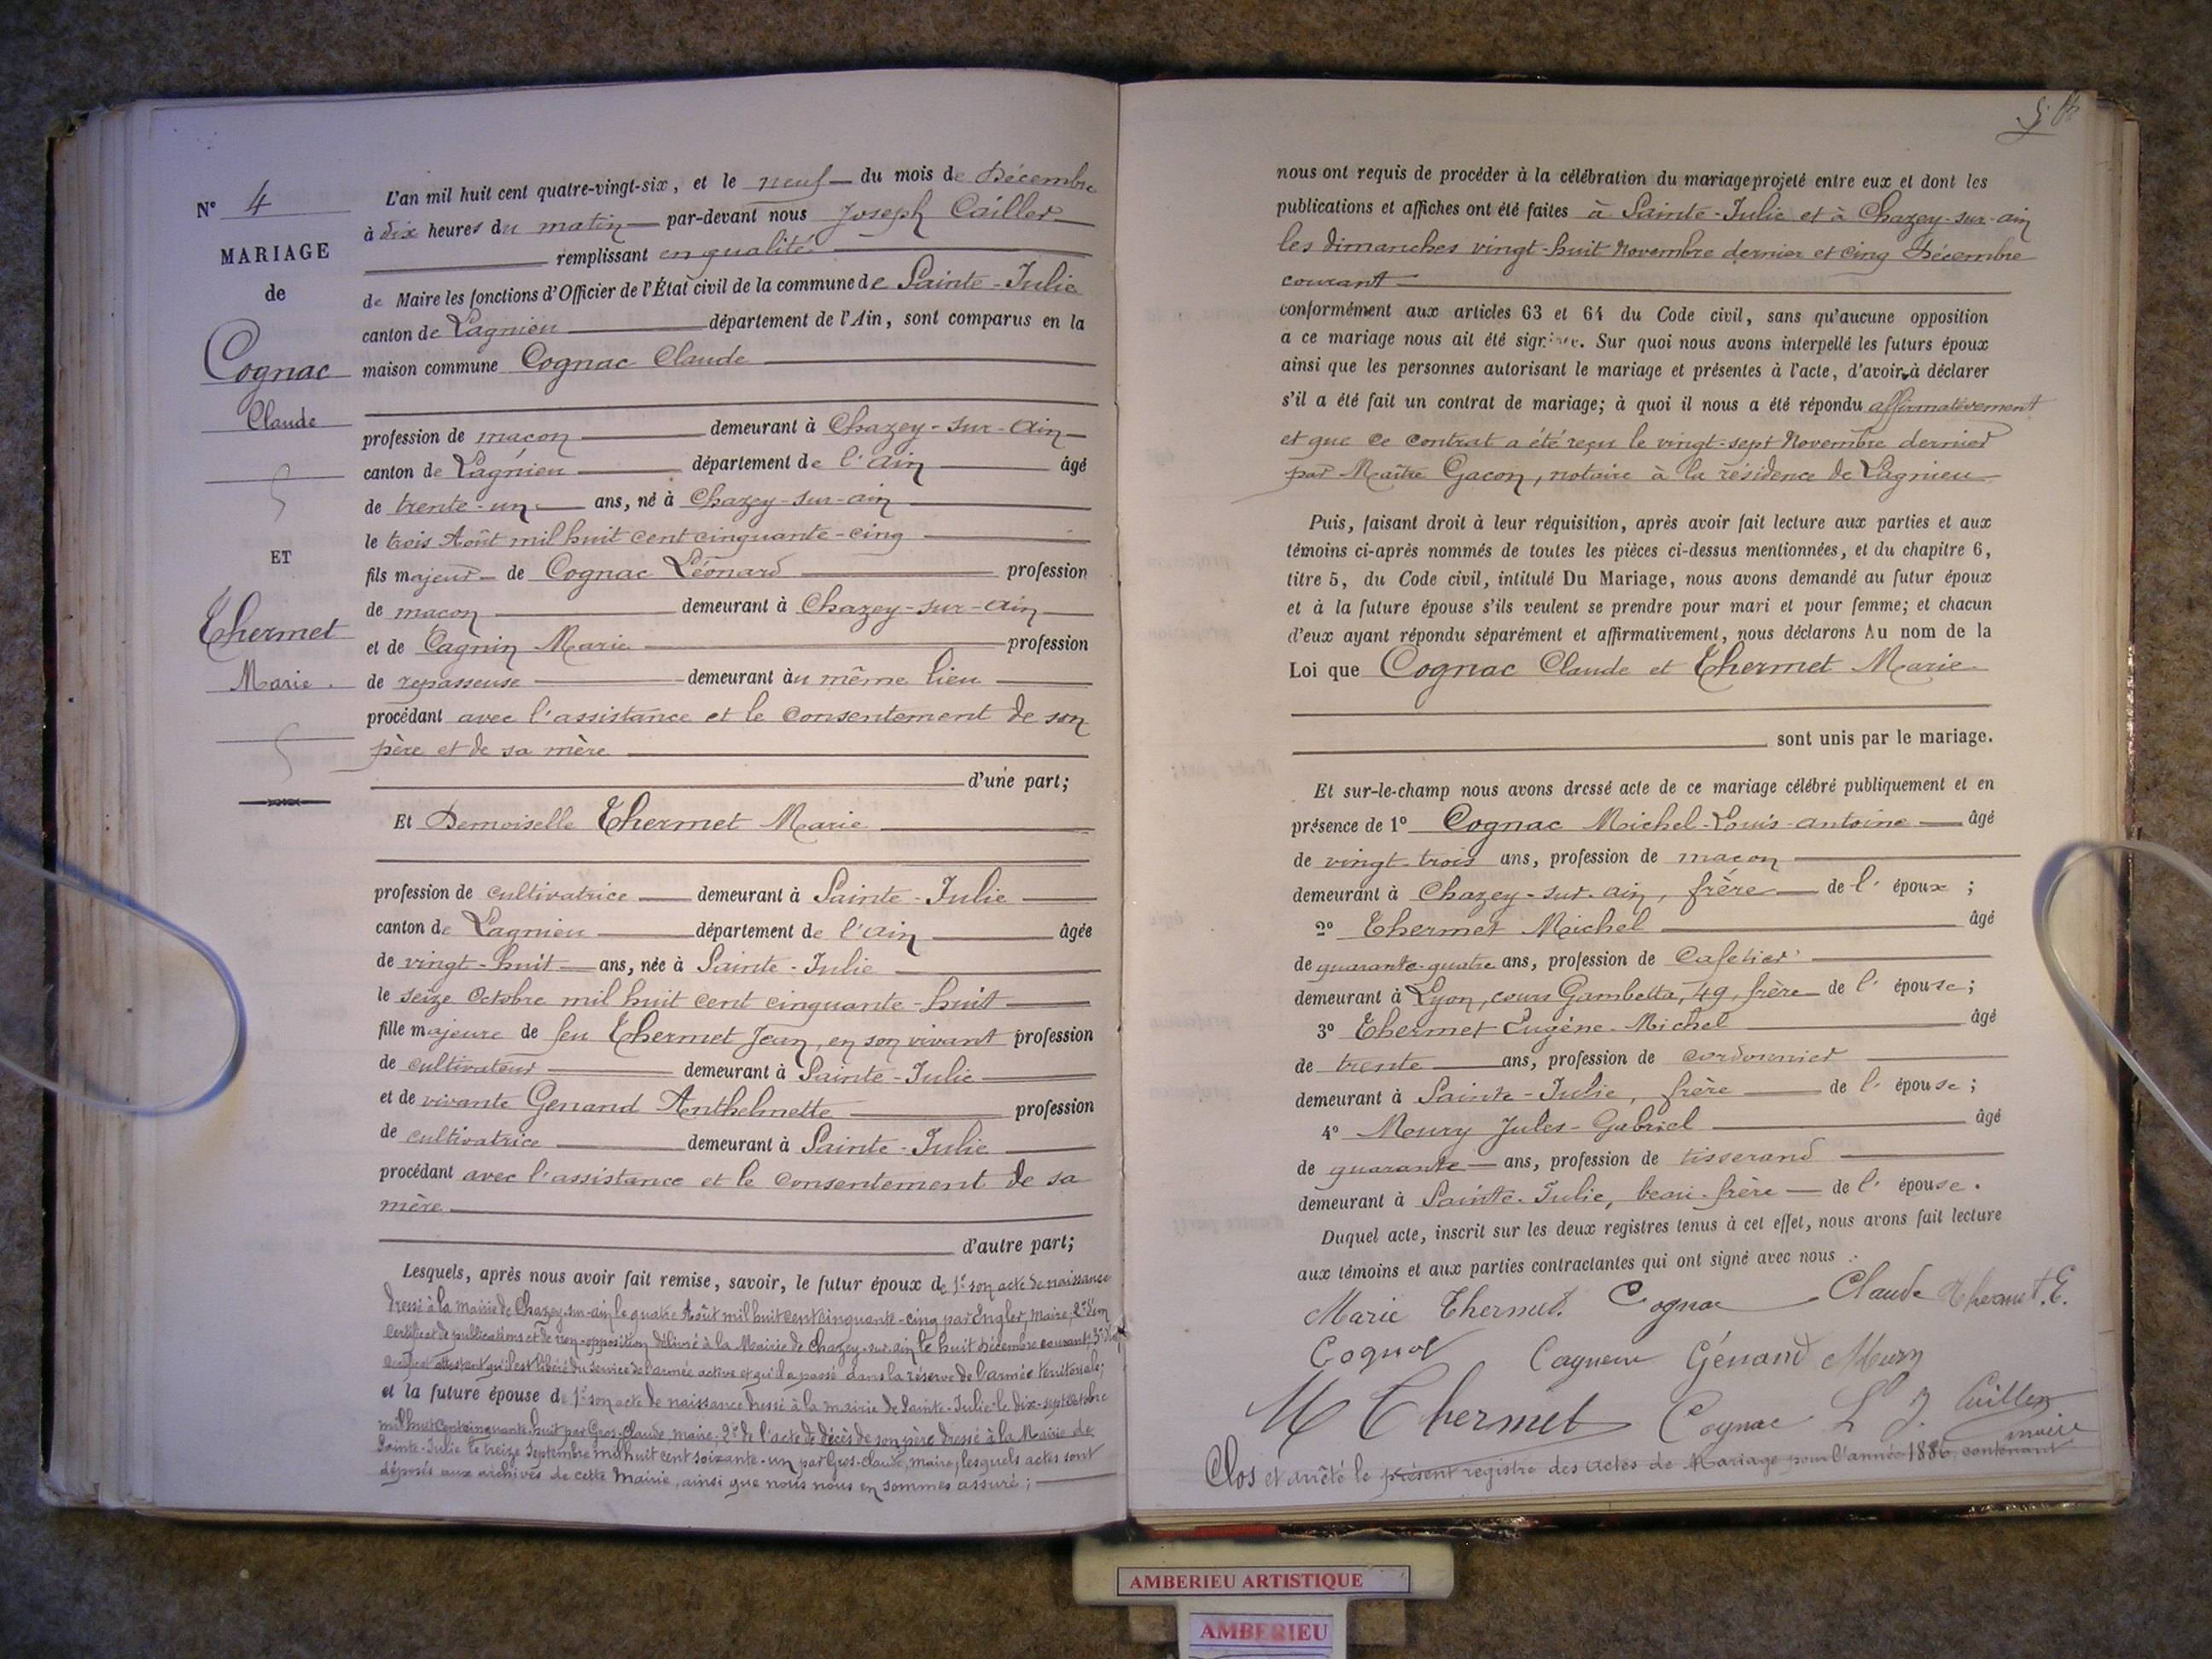 N° 4
MARIAGE
de
Cognac
Claude
ET
Thermet
Marie.
L'an mil huit cent quatre-vingt-six, et le neuf du mois de Décembre
à dix heures du matin par-devant nous Joseph Cailler
remplissant en qualité
de Maire les fonctions d'Officier de l'État civil de la commune de Sainte-Julie
canton de Lagnieu département de l'Ain, sont comparus en la
maison commune Cognac Claude
profession de maçon demeurant à Chazey-sur-Ain
canton de Lagnieu département de l'ain âgé
de trente-un ans, né à Chazey-sur-ain
le trois Août mil huit cent cinquante-cinq
fils majeur de Cognac Léonard profession
de maçon demeurant à Chazey-sur-Ain
et de Cagnin Marie profession
de repasseuse demeurant au même lieu
procédant avec l'assistance et le consentement de son
père et de sa mère
d'une part;
Et Demoiselle Thermet Marie
profession de cultivatrice demeurant à Sainte-Julie
canton de Lagnieu département de l'ain âgée
de vingt-huit ans, née à Sainte-Julie
le seize Octobre mil huit cent cinquante-huit
fille majeure de feu Thermet Jean, en son vivant profession
de cultivateur demeurant à Sainte-Julie
et de vivante Genand Anthelmette profession
de cultivatrice demeurant à Sainte-Julie
procédant avec l'assistance et le consentement de sa
mère
d'autre part;
Lesquels, après nous avoir fait remise, savoir, le futur époux de 1° son acte de naissance
dressé à la mairie de Chazey-sur-ain le quatre Août mil huit cent cinquante-cinq par Ingler, maire, 2° d'un
certificat de publications et de non-opposition délivré à la Mairie de Chazey-sur-ain le huit Décembre courant; 3° d'un
certificat attestant qu'il est libéré du service de l'armée active et qu'il a passé dans la réserve de l'armée territoriale;
et la future épouse de 1° son acte de naissance dressé à la mairie de Sainte-Julie le dix-sept Octobre
mil huit cent cinquante-huit par Gros-Claude, maire; 2° de l'acte de décès de son père dressé à la Mairie de
Sainte-Julie le treize Septembre mil huit cent soixante-un par Gros-Claude, maire, lesquels actes sont
déposés aux archives de cette Mairie, ainsi que nous nous en sommes assuré;
nous ont requis de procéder à la célébration du mariage projeté entre eux et dont les
publications et affiches ont été faites à Sainte-Julie et à Chazey-sur-ain
les dimanches vingt-huit Novembre dernier et cinq Décembre
courant
conformément aux articles 63 et 64 du Code civil, sans qu'aucune opposition
a ce mariage nous ait été signifiée. Sur quoi nous avons interpellé les futurs époux
ainsi que les personnes autorisant le mariage et présentes à l'acte, d'avoir à déclarer
s'il a été fait un contrat de mariage; à quoi il nous a été répondu affirmativement
et que ce contrat a été reçu le vingt-sept Novembre dernier
par Maître Gacon, notaire à la résidence de Lagnieu
Puis, faisant droit à leur réquisition, après avoir fait lecture aux parties et aux
témoins ci-après nommés de toutes les pièces ci-dessus mentionnées, et du chapitre 6,
titre 5, du Code civil, intitulé Du Mariage, nous avons demandé au futur époux
et à la future épouse s'ils veulent se prendre pour mari et pour femme; et chacun
d'eux ayant répondu séparément et affirmativement, nous déclarons Au nom de la
Loi que Cognac Claude et Thermet Marie
sont unis par le mariage.
Et sur-le-champ nous avons dressé acte de ce mariage célébré publiquement et en
présence de 1° Cognac Michel-Louis-antoine âgé
de vingt-trois ans, profession de maçon
demeurant à Chazey-sur-ain, frère de l' époux ;
2° Thermet Michel âgé
de quarante-quatre ans, profession de Cafetier
demeurant à Lyon, cours Gambetta, 49, frère de l' épouse;
3° Thermet Eugène-Michel âgé
de trente ans, profession de cordonnier
demeurant à Sainte-Julie, frère de l' épouse;
4° Moury Jules-Gabriel âgé
de quarante ans, profession de tisserand
demeurant à Sainte-Julie, beau-frère de l' épouse.
Duquel acte, inscrit sur les deux registres tenus à cet effet, nous avons fait lecture
aux témoins et aux parties contractantes qui ont signé avec nous
Marie Thermet. Cognac Claude Thermet. E.
Cognac Génand Moury
M Thermet Cognac L J. Cailler
maire
Clos et arrêté le présent registre des actes de Mariage pour l'année 1886, contenant
AMBERIEU ARTISTIQUE
AMBERIEU